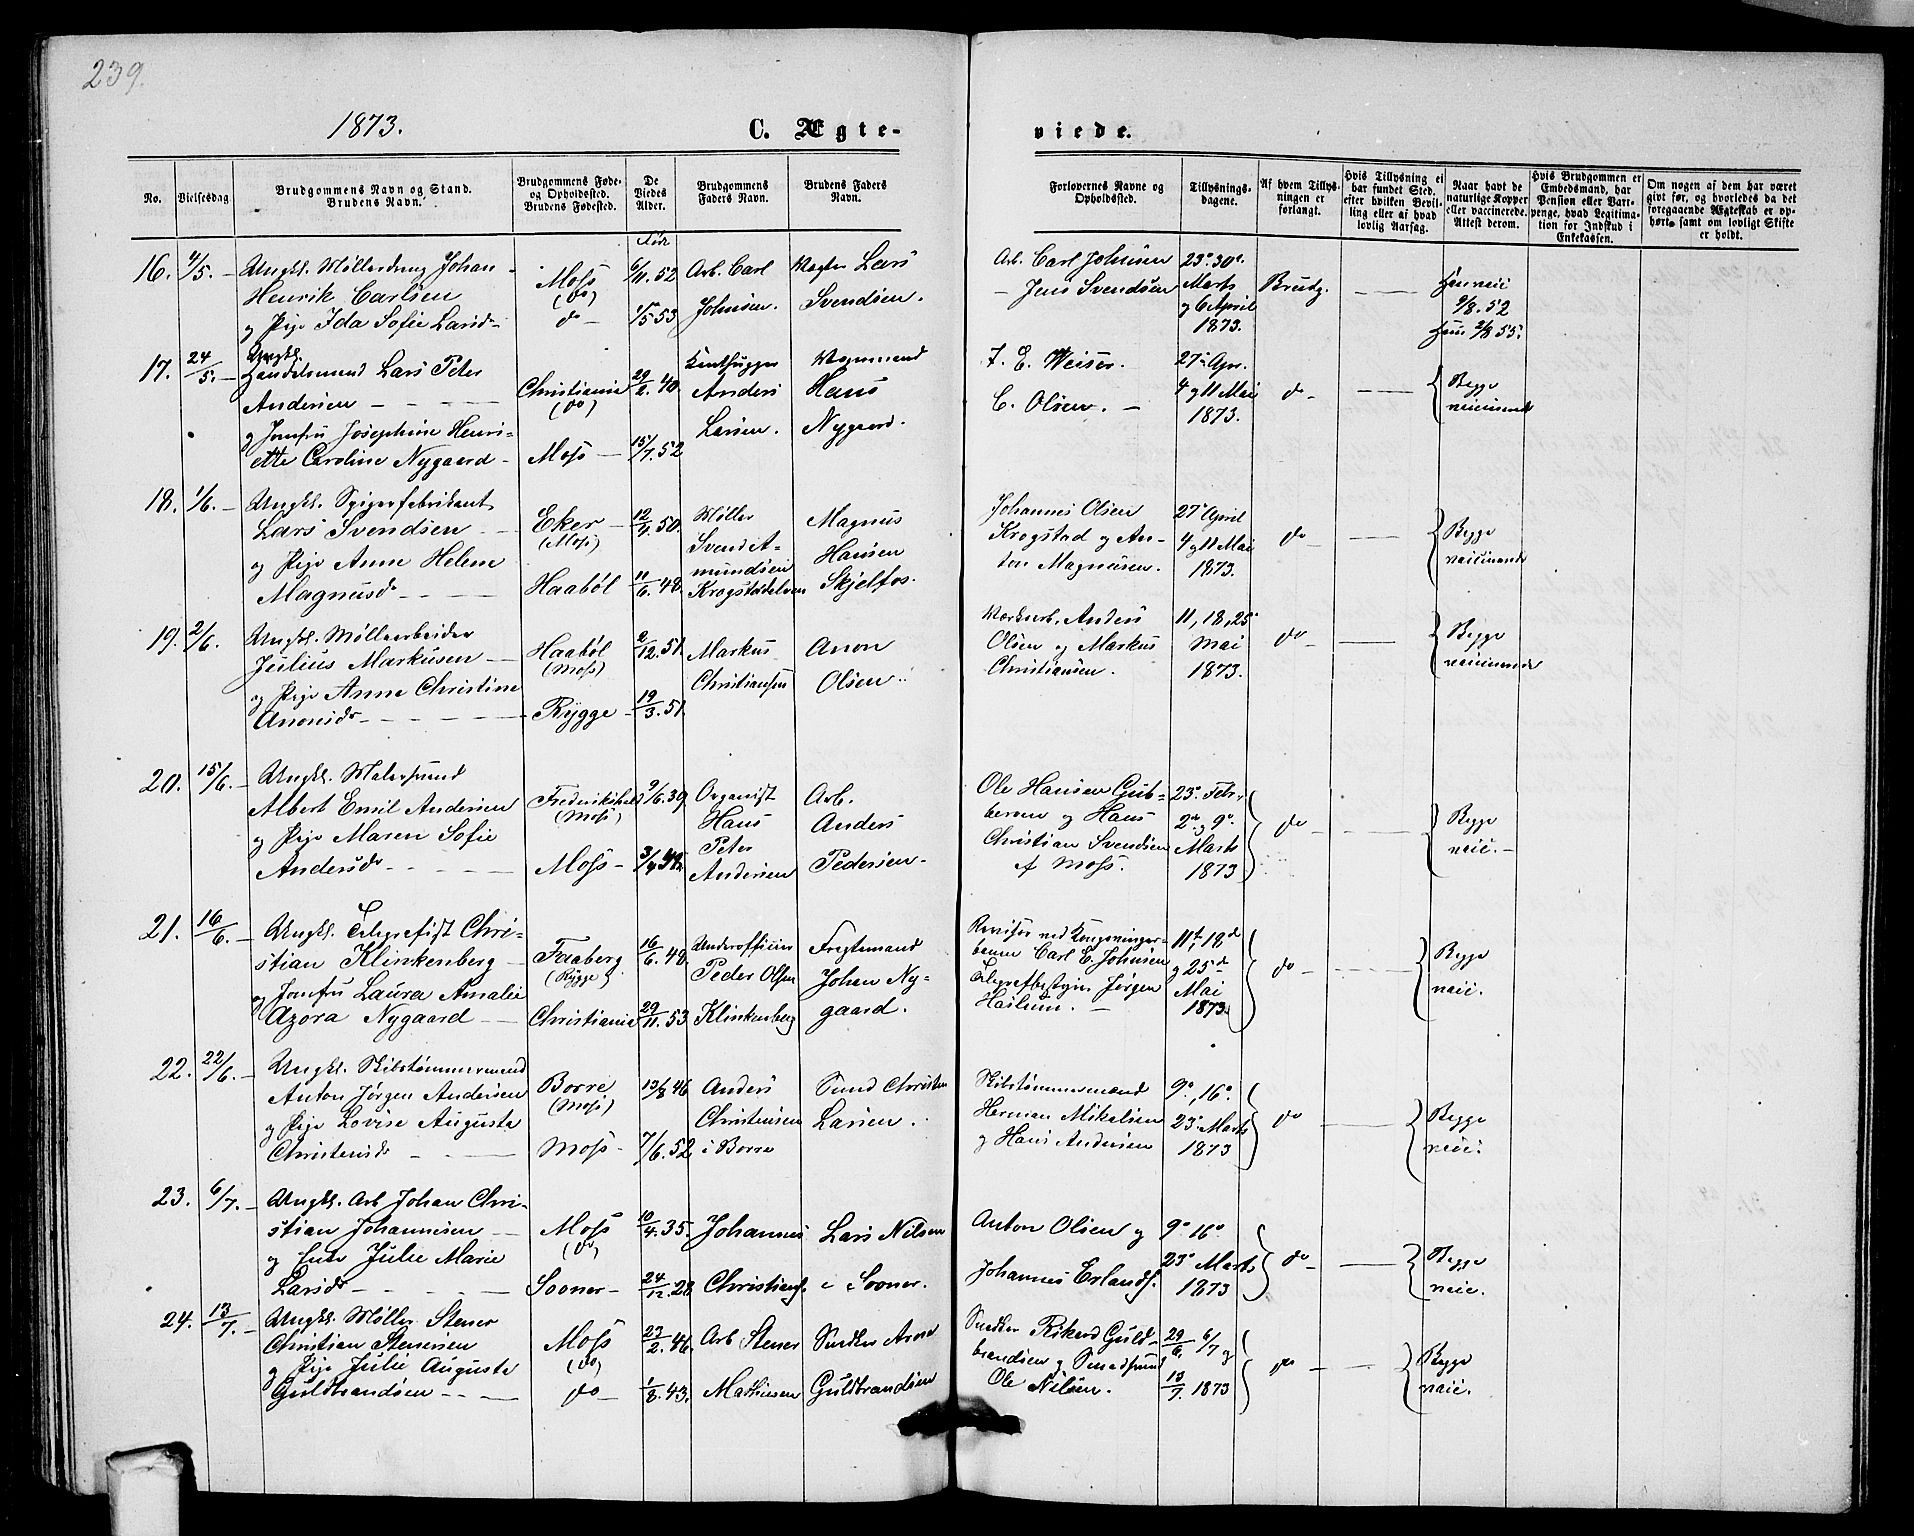 239.
1873.
C. Ægte-
viede.
No.
Vielsesdag.
Brudgommens Navn og Stand.
Brudens Navn.
Brudgommens Føde-
og Opholdssted.
Brudens Fødested.
De
Viedes
Alder.
Brudgommens
Faders Navn.
Brudens Faders
Navn.
Forlovernes Navne og
Opholdssted.
Tillysnings-
dagene.
Af hvem Tillys-
ningen er
forlangt.
Hvis Tillysning ei
har fundet Sted,
efter hvilken Bevil-
ling eller af hvad
lovlig Aarsag.
Naar havt de
naturlige Kopper
eller vaccinerede.
Attest derom.
Hvis Brudgommen er
Embedsmand, har
Pension eller Vart-
penge, hvad Legitima-
tion for Indskud i
Enkekassen.
Om nogen af dem har været
gift før, og hvorledes da det
foregaaende Ægteskab er op-
hørt, samt om lovligt Skifte
er holdt.
16. 4/5. Ungkl. Møllerdreng Johan
Henrik Carlsen
og Pige Ida Sofie Larsd.
Moss
(do)
do
Født
6/11. 52
1/5 53
Arb. Carl
Johnsen.
Lars
Svendsen.
Arb. Carl Johnsen
Jens Svendsen
23. 30.
Marts
og 6 April
1873.
Brudg.
9/8. 52
17. 24/5. Ungkl.
Handelsmand Lars Peter
Andersen
og Jomfru Josephine Henri-
ette Caroline Nygaard
Christiania
(do)
Moss
29/2. 40.
15/7. 52
Anders
Larsen.
Vognmand
Hans
Nygaard.
E. Weiser.
C. Olsen.
27. Apr.
4 og 11 Mai
1873.
do
Begge
vaccinerede
18. 1/6. Ungkl. Spigerfabrikant
Lars Svendsen
og Pige Anne Helene
Magnusd.
Eker
(Moss)
Haabøl
12/4. 50.
11/6. 48.
Møller
Svend A-
mundsen
Krogstadelven
Magnus
Hansen
Skjelfos.
Johannes Olsen
Krogstad og An-
ton Magnusen.
27. April
4 og 11 Mai
1873.
do
Begge
vaccinerede
19. 2/6. Ungkl. Møllearbeider
Julius Markusen
og Pige Anne Christine
Anonsd.
Haabøl
(Moss)
Rygge
2/12. 51.
19/3. 51.
Markus
Christiansen
Anon
Olsen.
Anders
Olsen og Markus
Christiansen.
11, 18, 25
Mai
1873.
do
Begge
vaccinerede
20. 15/6. Ungkl. Malersvend
Albert Emil Andersen
og Pige Maren Sofie
Andersd.
Frederikshald
(Moss)
Moss
9/6. 39
3/4 48.
Organist
Hans
Peter
Andersen
Arb.
Anders
Pedersen
Ole Hansen Gub-
beroen og Hans
Christian Svendsen
af Moss.
23. Febr.
2. og 9.
Marts
1873
do
Begge
vacc.
21. 16/6. Ungkl. Telegrafist Chri-
stian Klinkenberg
og Jomfru Laura Amalie
Azora Nygaard
Faaberg
(Rygge)
Christiania
16/6. 48.
29/11. 53
Underofficier
Peder Olsen
Klinkenberg
Fragtemand
Johan Ny-
gaard.
Revisor ved Kongsvinger-
banen Carl E. Johnsen
Telegrafbestyrer Jørgen
Haslum.
11te, 18de
og 25de
Mai
1873.
do
Begge
vacc.
22. 22/6. Ungkl. Skibstømmermand
Anton Jørgen Andersen
og Pige Lovise Augusta
Christensd.
Borre
(Moss)
Moss
13/8 46
7/6. 52
Anders
Christensen
i Borre
Christen
Larsen.
Skibstømmermænd
Herman Mikelsen
og Hans Andersen
9., 16.
23. Marts
1873
do
Begge
vacc.
23. 6/7. Ungkl. Arb Johan Chri-
stian Johannesen
og Enke Julie Marie
Larsd.
Moss
(do)
Sooner
10/4. 35.
24/12. 28
Johannes
Christians.
Lars Nilsen
i Sooner.
Anton Olsen og
Johannes Erlands.
9. 16.
23. Marts
1873
do
Begge
vacc.
24. 13/7. Ungkl. Møller Stener
Christian Stenersen
og Pige Julie Augusta
Guldbrandsen
Moss
(do)
do
23/2. 46.
1/8. 43.
Arb Stener
Mathiesen
Snedker Arne
Guldbrandsen
Snedker Rikard Guld-
brandsen og
Ole Nilsen.
29/6. 6/7 og
13/7. 1873
do
Begge
vacc.